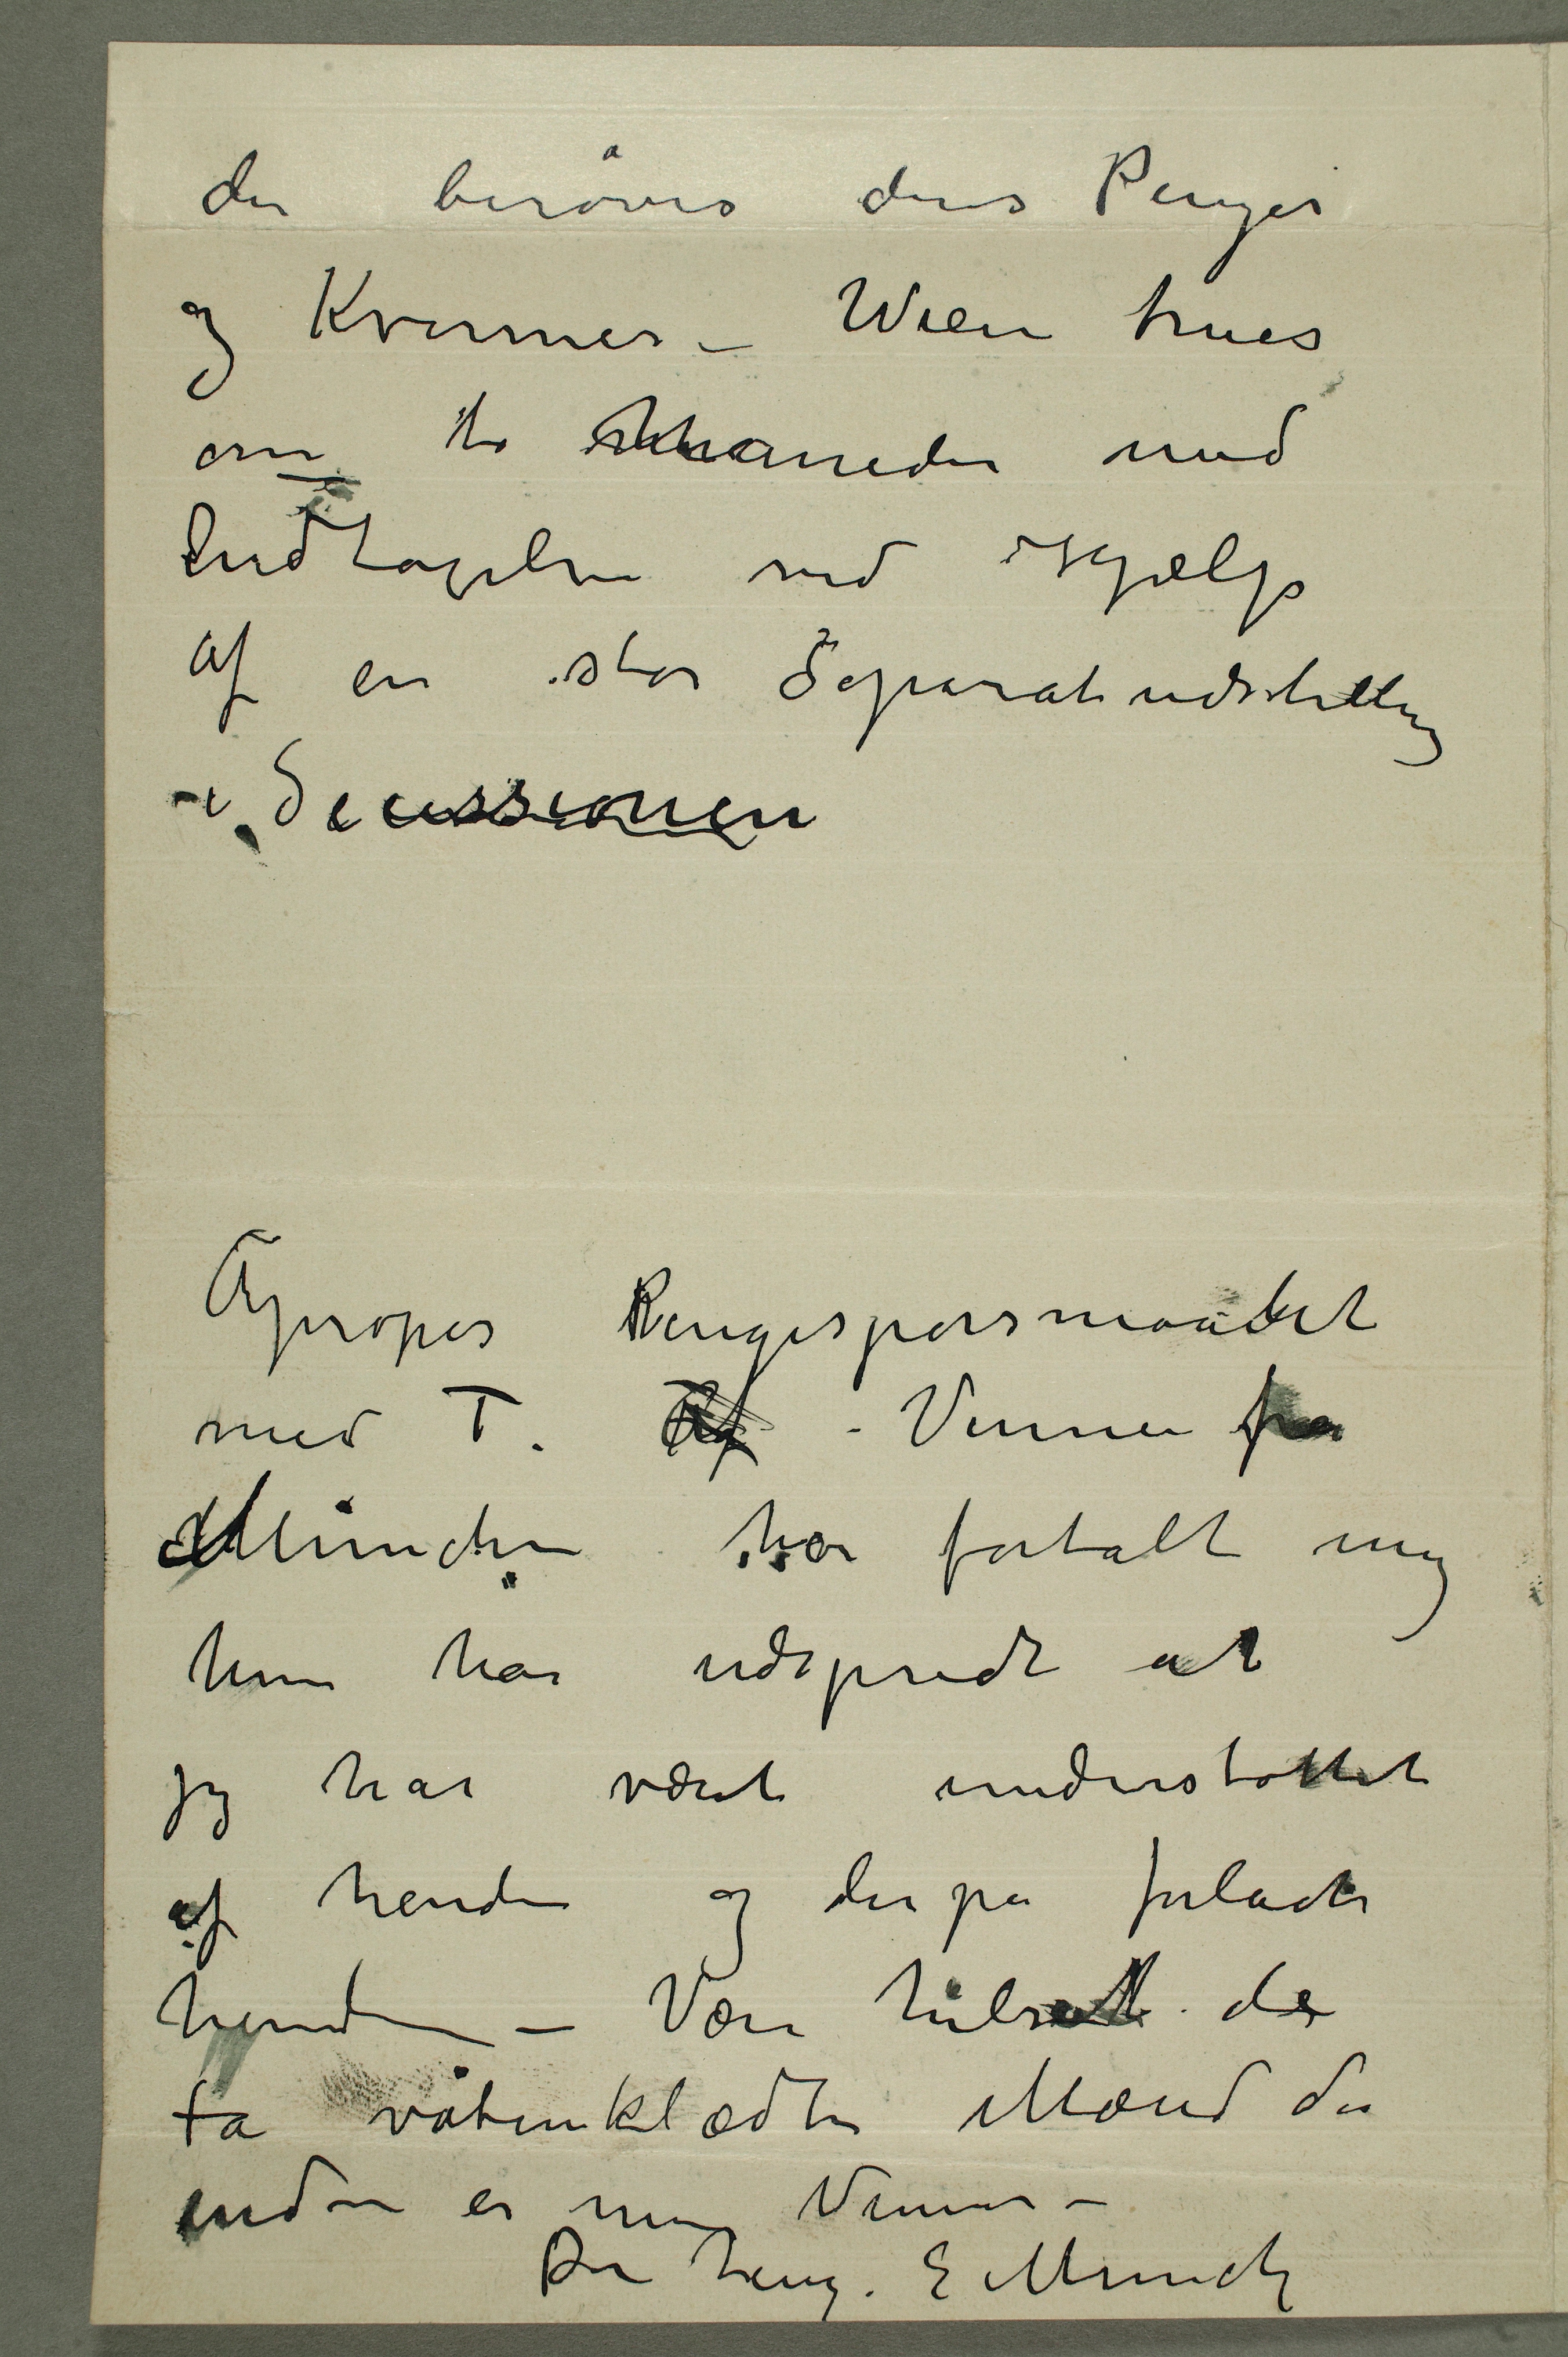 der berøves deres Penger
og Kvinner – Wien trues
om to maaneder med
Indtagelse ved Hjælp
af en stor Separatudstilling
i Secessionen
Apropos Pengespørsmaalet
med T. Af - Venner fra
München har fortalt mig
hun har udspredt at
jeg har været understøttet
af hende og derpå forladt
hende – Vær hilset de
få våbenklædte Mænd der
endnu er min Venner –
Din heng. E Munch